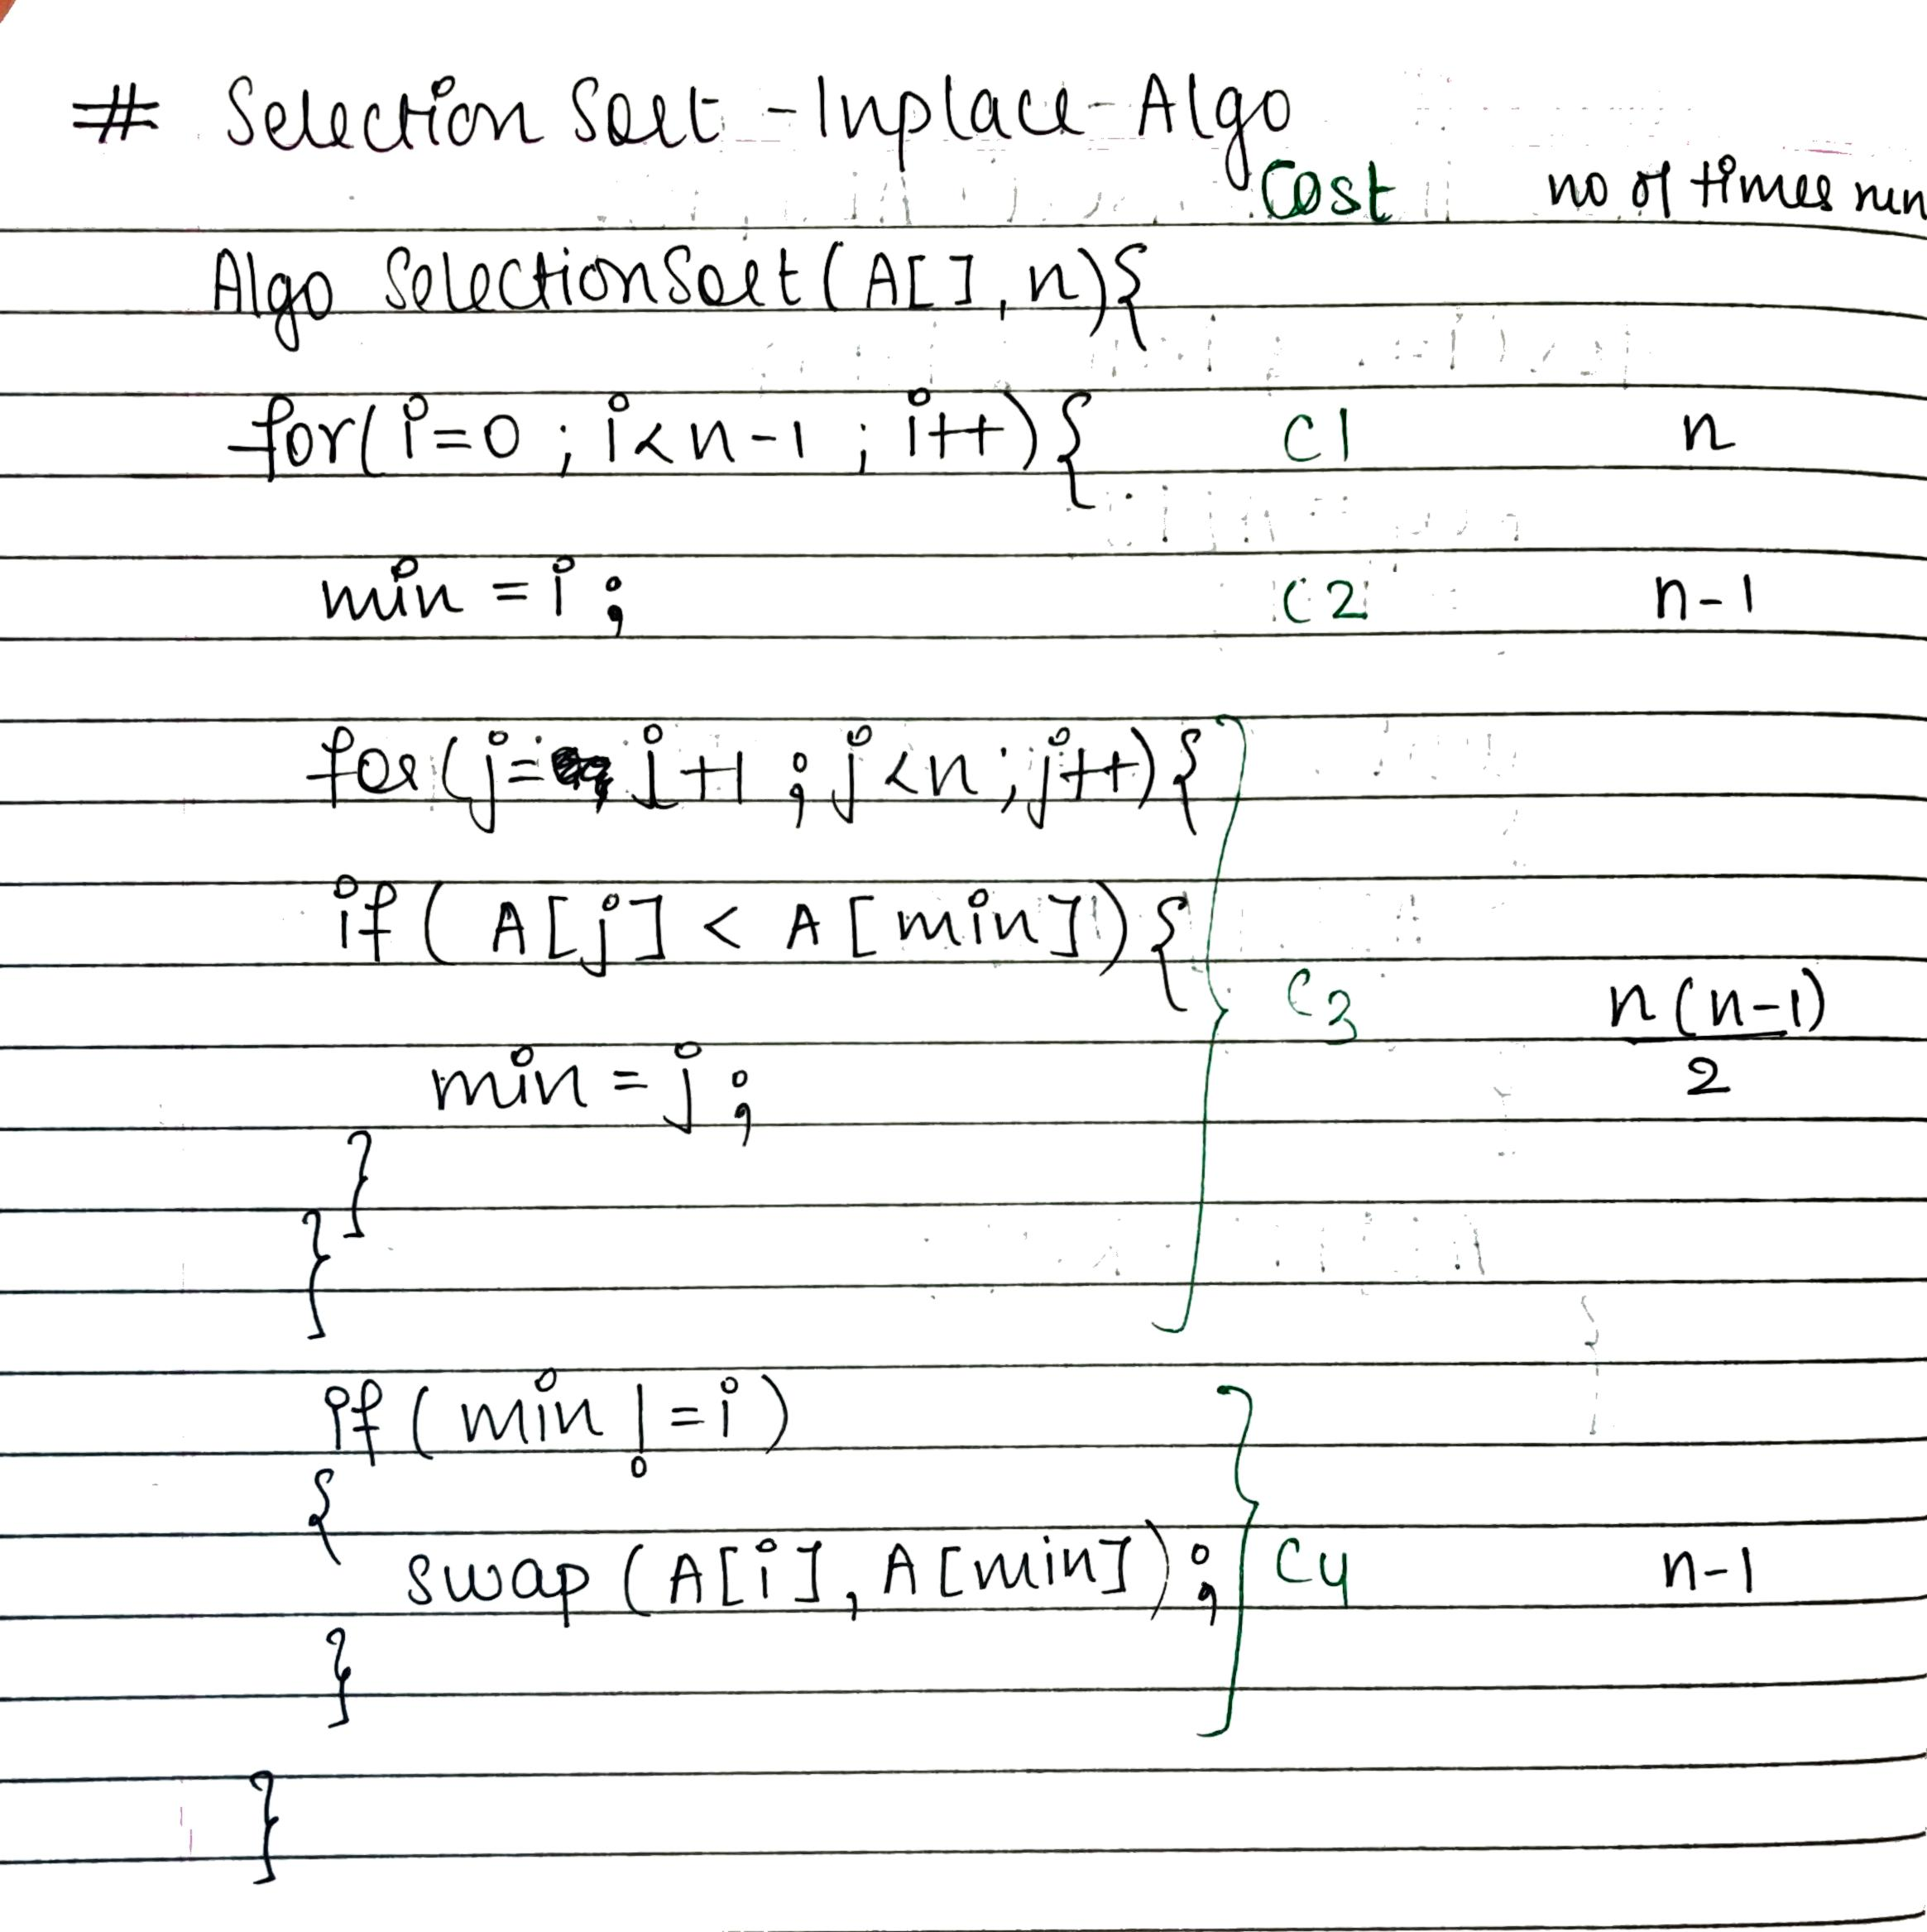 # Selection Sort - Inplace-Algo
Cost no of times run
Algo SelectionSort(A[], n){
for(i=0 ; i<n-1 ; i++){ C1 n
min = i ; C2 n-1
for(j= i+1 ; j<n ; j++){
if( A[j] < A[min]){
C3 n(n-1)/2
min = j ;
}
}
if( min != i )
{
swap (A[i], A[min]) ; C4 n-1
}
}